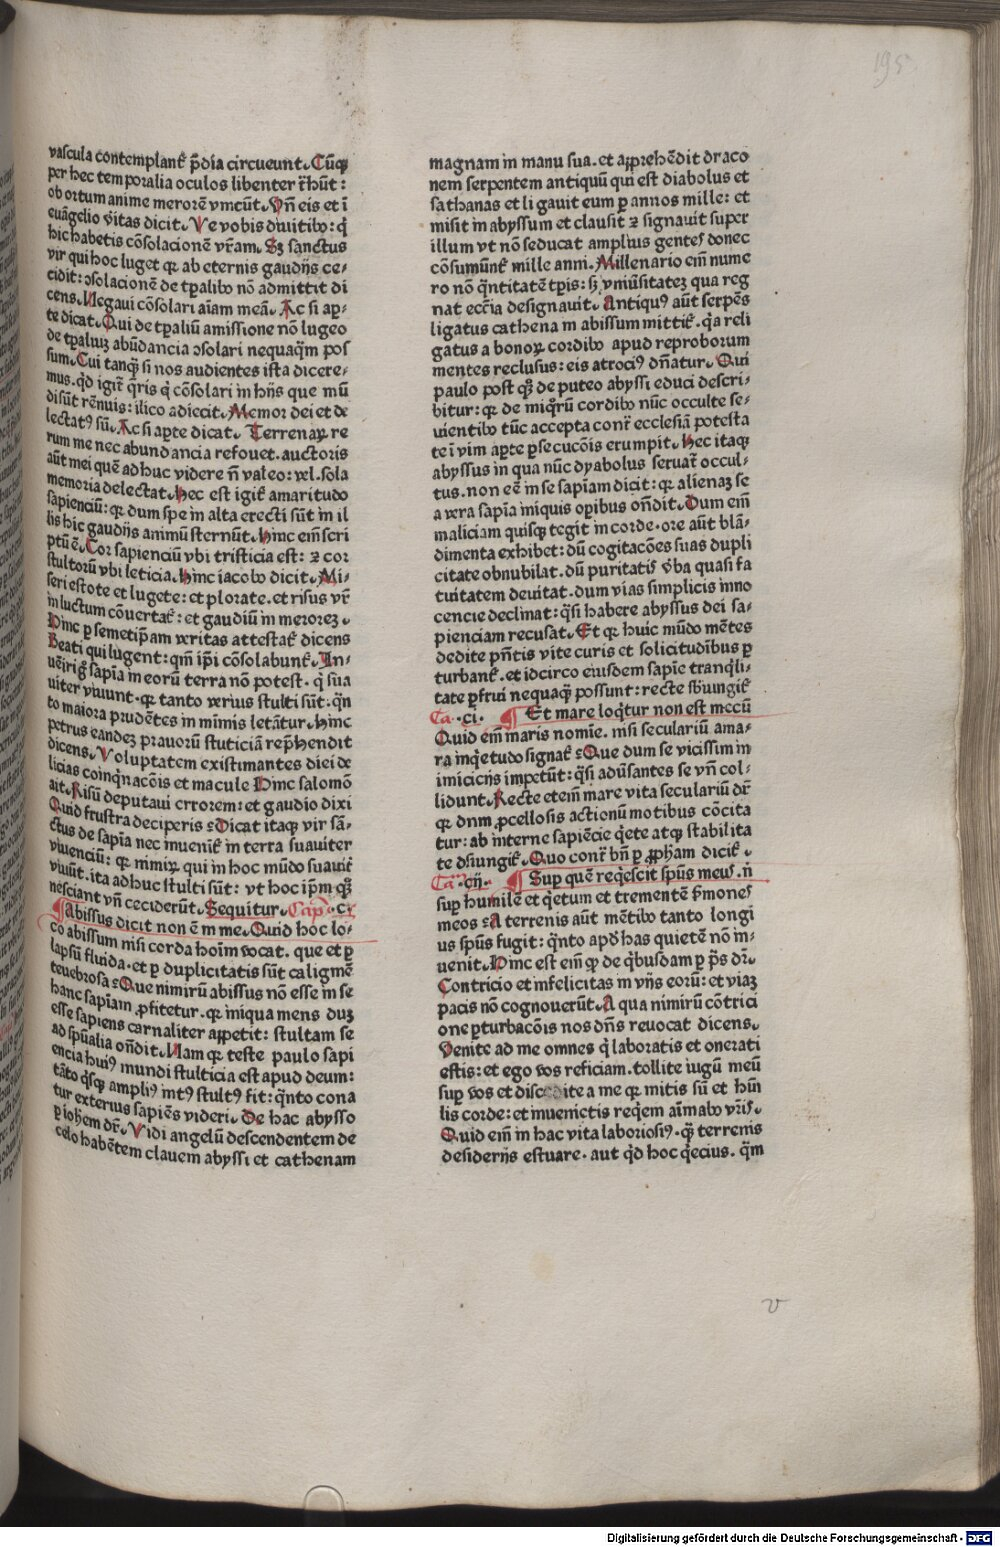 195
vascula contemplant᷑ p̄dia circueunt. Cūqꝫ
per hec temporalia oculos libenter t᷑hūt:
ob ortum anime merorē vincūt. Vn̄ eis et ī
euāgelio v̄itas dicit. Ve vobis diuitibꝰ: q̇
hic habetis cōsolacionē vr̄am. Sꝫ sanctus
vir qui hoc luget qꝛ ab eternis gaudijs ce⸗
cidit: ↄsolacionē de tꝑalibꝰ nō admittit di
cens. Negaui cōsolari aīam meā. Ac si aꝑ⸗
te dicat. Qui de tꝑaliū amissione nō lugeo
de tꝑaliuꝫ abūdancia ↄsolari nequaq̄m pos
sum. Cui tanqꝫ si nos audientes ista dicere⸗
mus. qd̓ igit᷑ q̄ris q̇ cōsolari in hijs que mū
di sūt rēnuis: ilico adiecit. Memor dei et de
lectatꝰ sū. Ac si aꝑte dicat. Terrenaꝝ re
rum me nec abundancia refouet. auctoris
aūt mei quē adhuc videre n̄ valeo: vel sola
memoria delectat. Hec est igit᷑ amaritudo
sapienciū: qꝛ dum spe in alta erecti sūt in il
lis hic gaudijs animū sternūt. Hinc em̄ scri
ptū ē. Cor sapienciū vbi tristicia est: ⁊ cor
stultorū vbi leticia. Hinc iacobꝰ dicit. Mi⸗
seri estote et lugete: et plorate. et risus vr̄
in luctum cōuertat᷑: et gaudiū in merorez.
Hinc ꝑ semetip̄am veritas attestat᷑ dicens
Beati qui lugent: qm̄ ip̄i cōsolabunt᷑. In⸗
uēiri gͦ sapīa in eorū terra nō potest. q̇ sua
uiter viuunt. qꝛ tanto verius stulti sūt. q̄n
to maiora prudētes in minis letātur. Hinc
petrus eandeꝫ prauorū stuticiā rep̄hendit
dicens. Voluptatem existimantes diei de
licias coinq̇nacōis et macule Hinc salomō
ait. Risū deputaui errorem: et gaudio dixi
Quid frustra deciperis ⸗Dicat itaqꝫ vir sā⸗
ctus de sapīa nec inuenit᷑ in terra suauiter
viuenciū: qꝛ nimiꝝ qui in hoc mūdo suauit᷑
viuūt. ita adhuc stulti sūt: vt hoc ip̄m qꝫ
nesciant vn̄ ceciderūt. Sequitur. Cap̄. c.
¶Abissus dicit non ē in me. Quid hoc lo⸗
co abissum nisi corda hoīm vocat. que et ꝑ
lapsū fluida. et ꝑ duplicitatis sūt caliginē
tenebrosa ⸗Que nimirū abissus nō esse in se
hanc sapīam ꝓfitetur. qꝛ iniqua mens duꝫ
esse sapiens carnaliter aꝑpetit: stultam se
ad spūalia on̄dit. Nam qꝛ teste paulo sapi
encia huiꝰ mundi stulticia est apud deum:
tāto q̇sqꝫ ampliꝰ intꝰ stultꝰ fit: q̄nto cona
tur exterius sapiēs videri. De hac abysso
ꝑ ioh̄em dr̄. Vidi angelū descendentem de
celo habētem clauem abyssi et cathenam
magnam in manu sua. et aꝑprehēdit draco
nem serpentem antiquū qui est diabolus et
sathanas et ligauit eum ꝑ annos mille: et
misit in abyssum et clausit ⁊ signauit super
illum vt nō seducat amplius gentes donec
cōsumūnt᷑ mille anni. Millenario em̄ nume
ro nō q̄ntitatē tꝑis: sꝫ vniūsitateꝫ qua reg
nat ecc̄ia designauit. Antiquꝰ aūt serpēs
ligatus cathena in abissum mittit᷑. q̇a reli
gatus a bonoꝝ cordibꝰ apud reproborum
mentes reclusus: eis atrociꝰ dn̄atur. Qui
paulo post qꝫ de puteo abyssi educi descri⸗
bitur: qꝛ de miq̄rū cordibꝰ nūc occulte se⸗
uientibꝰ tūc accepta cont᷑ ecclesiā potesta
te ī vim aꝑte ꝑsecucōis erumpit. Hec itaqꝫ
abyssus in qua nūc dyabolus seruat᷑ occul⸗
tus. non eē in se sapīam dicit: qꝛ alienaꝫ se
a vera sapīa iniquis oꝑibus on̄dit. Dum em̄
maliciam quisqꝫ tegit in corde. ore aūt blā⸗
dimenta exhibet: dū cogitacōes suas dupli
citate obnubilat. dū puritatis v̄ba quasi fa
tuitatem deuitat. dum vias simplicis inno
cencie declinat: q̄si habere abyssus dei sa⸗
pienciam recusat. Et qꝛ huic mūdo mētes
dedite p̄ntis vite curis et solicitudībus ꝑ
turbant᷑. et idcirco eiusdem sapīe tranq̇li⸗
tate ꝑfrui nequaqꝫ possunt: recte sb̄iungit᷑
Ca. ci. ¶ Et mare loq̇tur non est mecū
Quid em̄ maris noīe. nisi seculariū ama⸗
ra inq̇etudo signat᷑ ⸗Que dum se vicissim in
imicicijs impetūt: q̄si adūsantes se vn̄ col⸗
lidunt. Recte etem̄ mare vita seculariū dr̄
qꝛ dum ꝓcellosis actionū motibus cōcita
tur: ab interne sapiēcie q̇ete atqꝫ stabilita
te dsiungit᷑. Quo cont᷑ bn̄ ꝑ ꝓph̄am dicit᷑.
Caᵐ. cij. ¶ Suꝑ quē req̇escit spūs meꝰ. n̄
suꝑ humilē et q̇etum et trementē ẜmones
meos ⸗A terrenis aūt mētibꝰ tanto longi
us spūs fugit: q̄nto apd̓ has quietē nō in⸗
uenit. Hinc est em̄ ꝙ de q̇busdam ꝑ p̄s dr̄.
Contricio et infelicitas in vijs eorū: et viaꝫ
pacis nō cognouerūt. A qua nimirū cōtrici
one ꝑturbacōis nos dn̄s reuocat dicens.
Venite ad me omnes q̇ laboratis et onerati
estis: et ego vos reficiam. tollite iugū meū
suꝑ vos et discite a me qꝛ mitis sū et hūi
lis corde: et inuenictis req̇em aīmabꝰ vr̄is.
Quid em̄ in hac vita laboriosiꝰ. qꝫ terrenis
desiderijs estuare. aut qd̓ hoc q̇ecius. q̄m
v
Digitalisierung gefördert durch die Deutsche Forschungsgemeinschaft - DFG